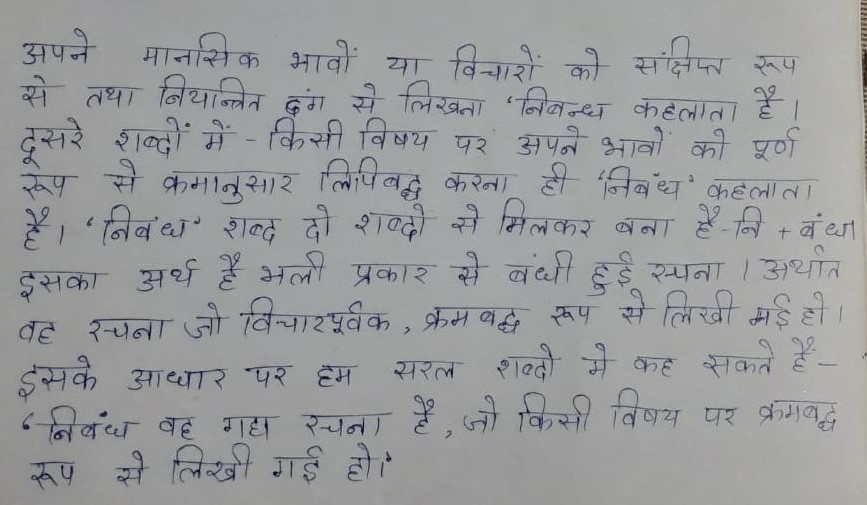 अपने मानसिक भावों या विचारों को संक्षिप्त रूप
से तथा नियान्त्रित ढंग से लिखना 'निबन्ध कहलाता है।
दूसरे शब्दों में - किसी विषय पर अपने भावों को पूर्ण
रूप से क्रमानुसार लिपिबद्ध करना ही 'निबंध' कहलाता
है। 'निबंध' शब्द दो शब्दो से मिलकर बना है-नि + बंध।
इसका अर्थ है भली प्रकार से बंधी हुई रचना। अर्थात
वह रचना जो विचारपूर्वक, क्रमबद्ध रूप से लिखी गई हो।
इसके आधार पर हम सरल शब्दो मे कह सकते हैं-
'निबंध वह गद्य रचना है, जो किसी विषय पर क्रमबद्ध
रूप से लिखी गई हो।'